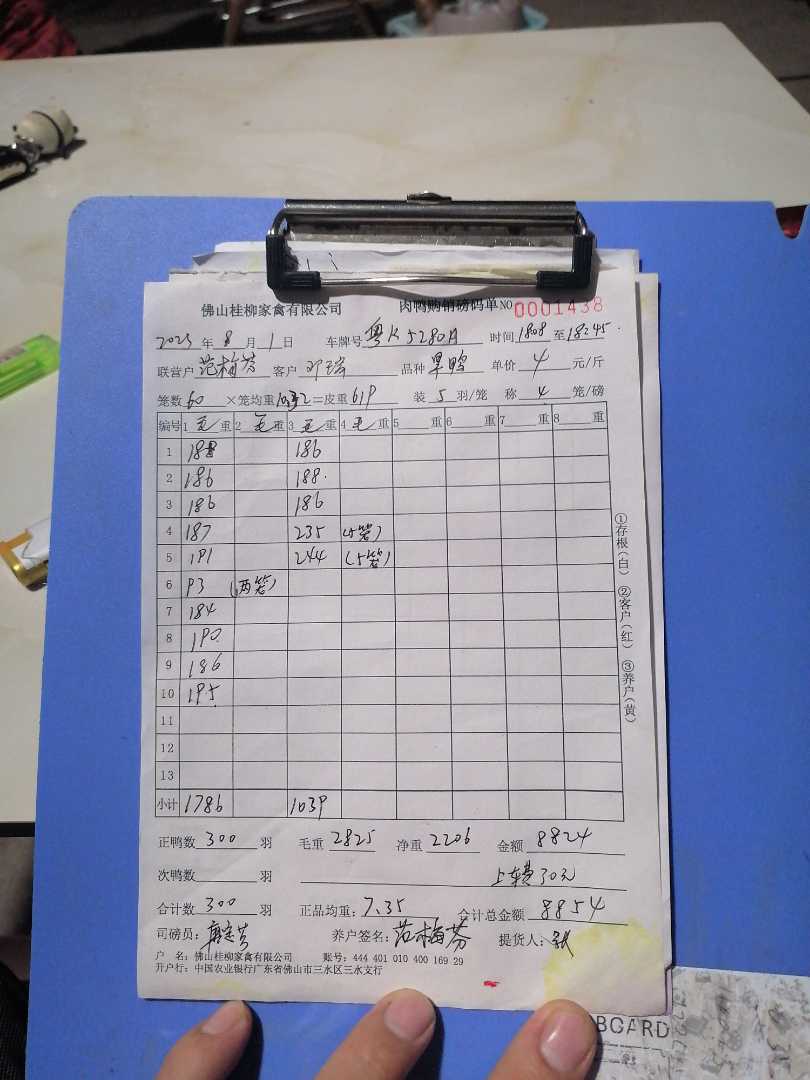 佛山桂柳家禽有限公司 肉鸭购销磅码单 NO 0001438
2023 年 8 月 1 日 车牌号 粤K5280A 时间 1808 至 18:45.
联营户 范梅芬 客户 邓瑞 品种 旱鸭 单价 4 元/斤
笼数 60 ×笼均重 =皮重 619 装 5 羽/笼 称 4 笼/磅
编号 1 毛 重 2 毛 重 3 毛 重 4 毛 重 5 重 6 重 7 重 8 重
1 188 186
2 186 188.
3 186 186
4 187 235 (5笼)
5 191 244 (5笼)
6 93 (两笼)
7 184
8 190
9 186
10 195
11
12
13
小计 1786 1039
①存根(白) ②客户(红) ③养户(黄)
正鸭数 300 羽 毛重 2825 净重 2206 金额 8824
次鸭数 羽 上车费30元
合计数 300 羽 正品均重: 7.35 合计总金额 8854
司磅员: 养户签名: 范梅芬 提货人:
户 名: 佛山桂柳家禽有限公司 账号: 444 401 010 400 169 29
开户行: 中国农业银行广东省佛山市三水区三水支行
BOARD